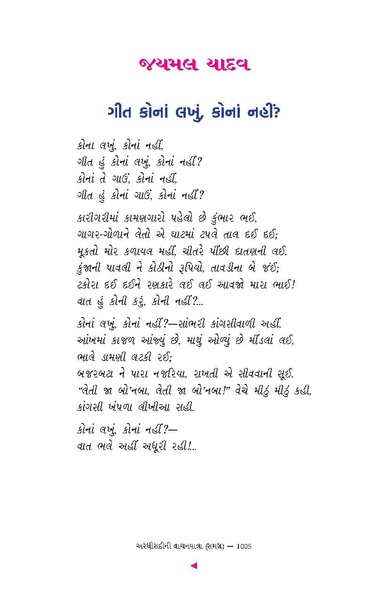 જયમલ યાદવ
ગીત કોનાં લખું, કોનાં નહીં?
કોના લખું, કોનાં નહીં,
ગીત હું કોનાં લખું, કોનાં નહીં?
કોનાં તે ગાઉં, કોનાં નહીં,
ગીત હું કોનાં ગાઉં, કોનાં નહીં?
કારીગરીમાં કામણગારો પહેલો છે કુંભાર ભઈ,
ગાગર-ગોળાને લેતો એ ઘાટમાં ટપલે તાલ દઈ દઈ;
મૂકતો મોર કળાયલ મહીં, ચીતરે પીંછી દાતણની લઈ.
કુંજાની પાવલી ને કોઠીનો રૂપિયો, તાવડીના બે જંઈ;
ટકોરા દઈ દઈને રણકારે લઈ લઈ આવજો મારા ભાઈ!
વાત હું કોની કરું, કોની નહીં?...
કોનાં લખું, કોનાં નહીં?—સાંભરી કાંગસીવાળી અહીં.
આંખમાં કાજળ આંજ્યું છે, માથું ઓળ્યું છે મીંડલાં લઈ,
ભાલે ડામણી લટકી રઈ;
બજરબટા ને પારા નજરિયા, રાખતી એ સીવવાની સૂઈ.
“લેતી જા બો'નબા, લેતી જા બો'નબા!” વેચે મીઠું મીઠું કહી,
કાંગસી ખંપળા લીખીઆ સહી.
કોનાં લખું, કોનાં નહીં?—
વાત ભલે અહીં અધૂરી રહી!...
અરધીસદીની વાચનયાત્રા (સમગ્ર) — 1005